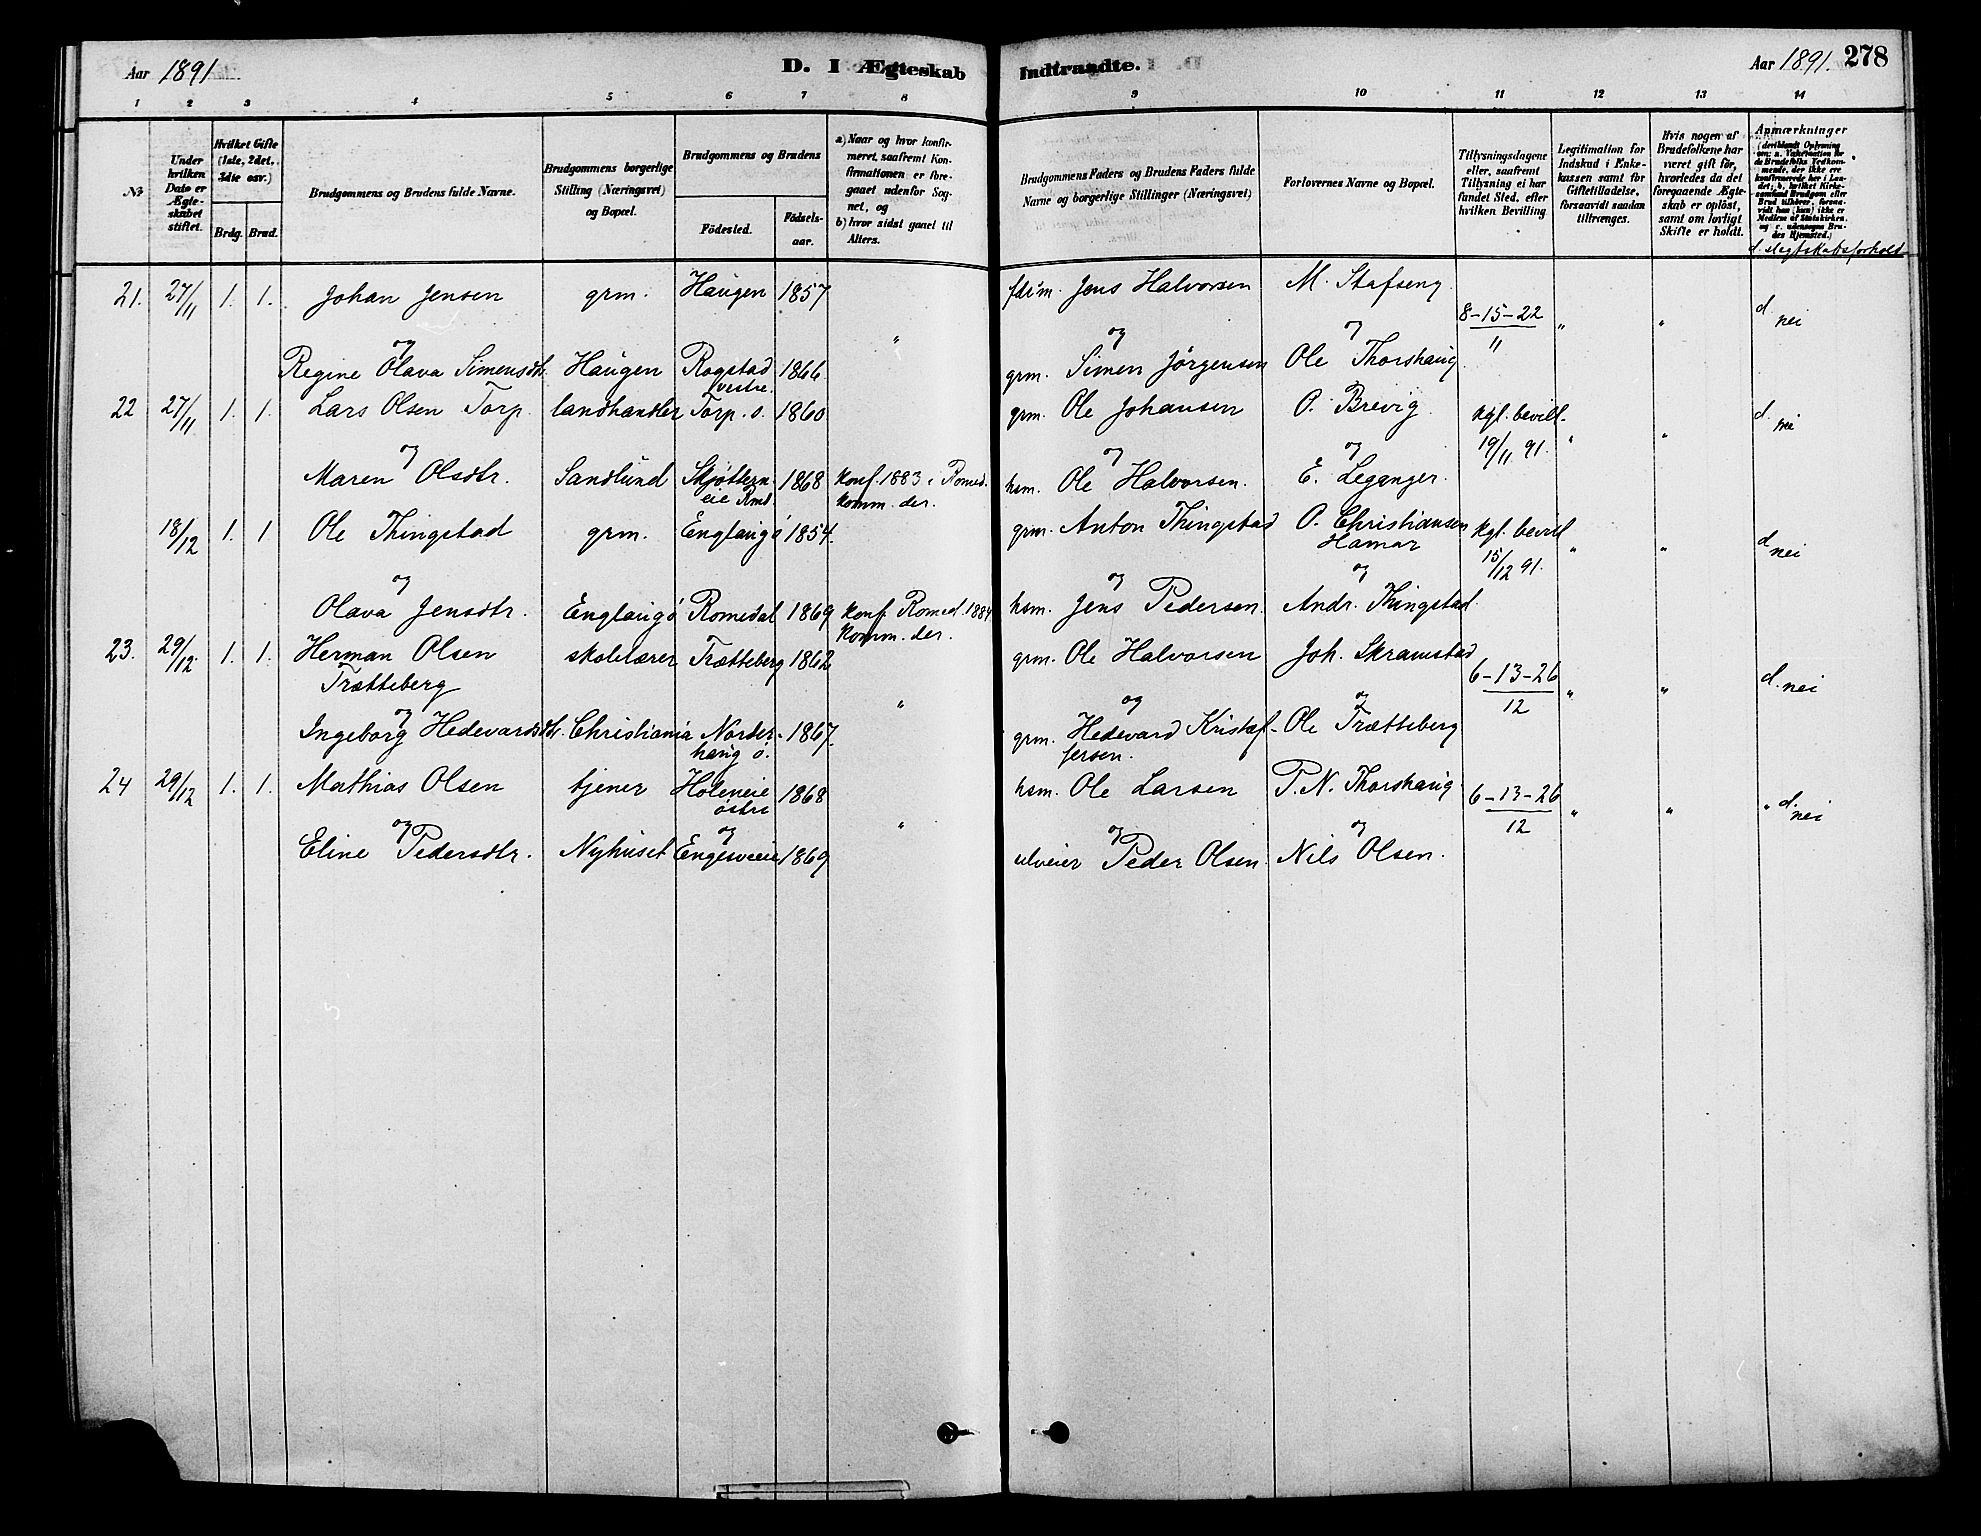 Aar 1891
D. I Ægteskab Indtraadte.
Aar 1891. 278
1 2 3 4 5 6 7 8 9 10 11 12 13 14
№
Under hvilken Dato er Ægteskabet stiftet.
Hvilket Gifte (1ste, 2det, 3die osv.)
Brdg. Brud.
Brudgommens og Brudens fulde Navne.
Brudgommens borgerlige Stilling (Næringsvei) og Bopæl.
Brudgommens og Brudens
Födested. Födselsaar.
a) Naar og hvor konfirmeret, saafremt Konfirmationen er foregaaet udenfor Sognet, og
b) hvor sidst gaaet til Alters.
Brudgommens Faders og Brudens Faders fulde Navne og borgerlige Stillinger (Næringsvei)
Forlovernes Navne og Bopæl.
Tillysningsdagene eller, saafremt Tillysning ei har fundet Sted, efter hvilken Bevilling.
Legitimation for Indskud i Enkekassen samt for Giftetilladelse, forsaavidt saadan tiltrænges.
Hvis nogen af Brudefolkene har været gift för, hvorledes da det foregaaende Ægteskab er oplöst, samt om lovligt Skifte er holdt.
Anmærkninger
(deriblandt Oplysning om: a. Vakcination for de Brudefolks Vedkommende, der ikke ere konfirmerede her i Landet; b. hvilket Kirkesamfund Brudgom eller Brud tilhörer, forsaavidt han (hun) ikke er Medlem af Statskirken, og c. udensogns Brudes Hjemsted.)
d. slegtskabsforhold
21. 27/11 1. 1. Johan Jensen grm. Haugen 1857 fdrm. Jens Halvorsen M. Stafseng 8-15-22 / 11 " " d. nei
og " og og
Regine Olava Simensdtr. Haugen Rogstad vestre. 1866 grm. Simen Jörgensen Ole Thorshaug
22 27/11 1. 1. Lars Olsen Torp. landhandler Torp. ö. 1860 grm. Ole Johansen O. Brevig kgl. bevill. 19/11 91. " " d. nei
og og og
Maren Olsdtr. Sandlund Skjötterneie Rmd. 1868 konf. 1883 i Romed. komm. der. hsm. Ole Halvorsen. E. Leganger.
18/12 1. 1 Ole Thingstad grm. Englaug ö 1854. grm. Anton Thingstad O. Christiansen Hamar kgl. bevill 15/12 91. " " d nei
og og og
Olava Jensdtr. Englaug ö Romedal 1869 konf. Romed. 1884 komm. der. hsm. Jens Pedersen. Andr. Thingstad.
23. 29/12 1. 1. Herman Olsen Trætteberg skolelærer Trætteberg 1862 grm. Ole Halvorsen Joh. Skramstad 6-13-26 / 12 " " d. nei
og " og og
Ingeborg Hedevardsdtr. Christiania Norderhaug ö. 1867. grm. Hedevard Kristoffersen. Ole Trætteberg
24 29/12 1. 1. Mathias Olsen tjener Holeneie östre 1868 hsm. Ole Larsen P.N. Thorshaug 6-13-26 / 12 " " " d. nei
og og " og og
Eline Pedersdtr. Nyhuset Engesveeie 1869 Peder Olsen. Nils Olsen.